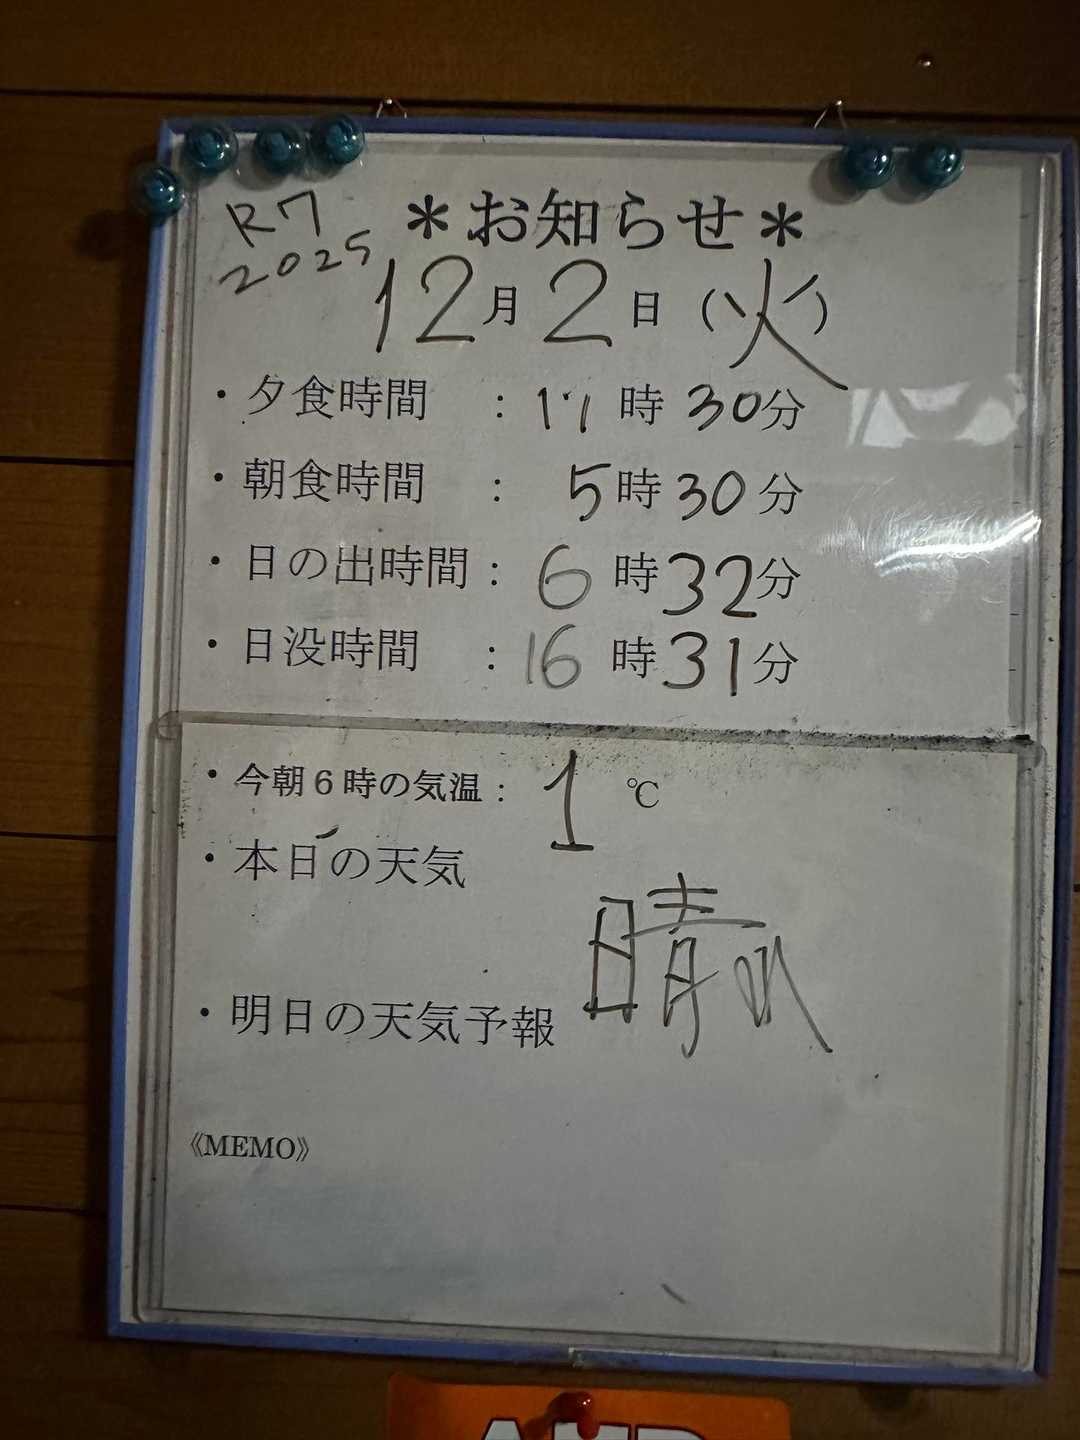 R7
2025
＊お知らせ＊
12月2日（火）
・夕食時間　：17時30分
・朝食時間　：5時30分
・日の出時間：6時32分
・日没時間　：16時31分
・今朝６時の気温：1℃
・本日の天気
晴れ
・明日の天気予報
《MEMO》